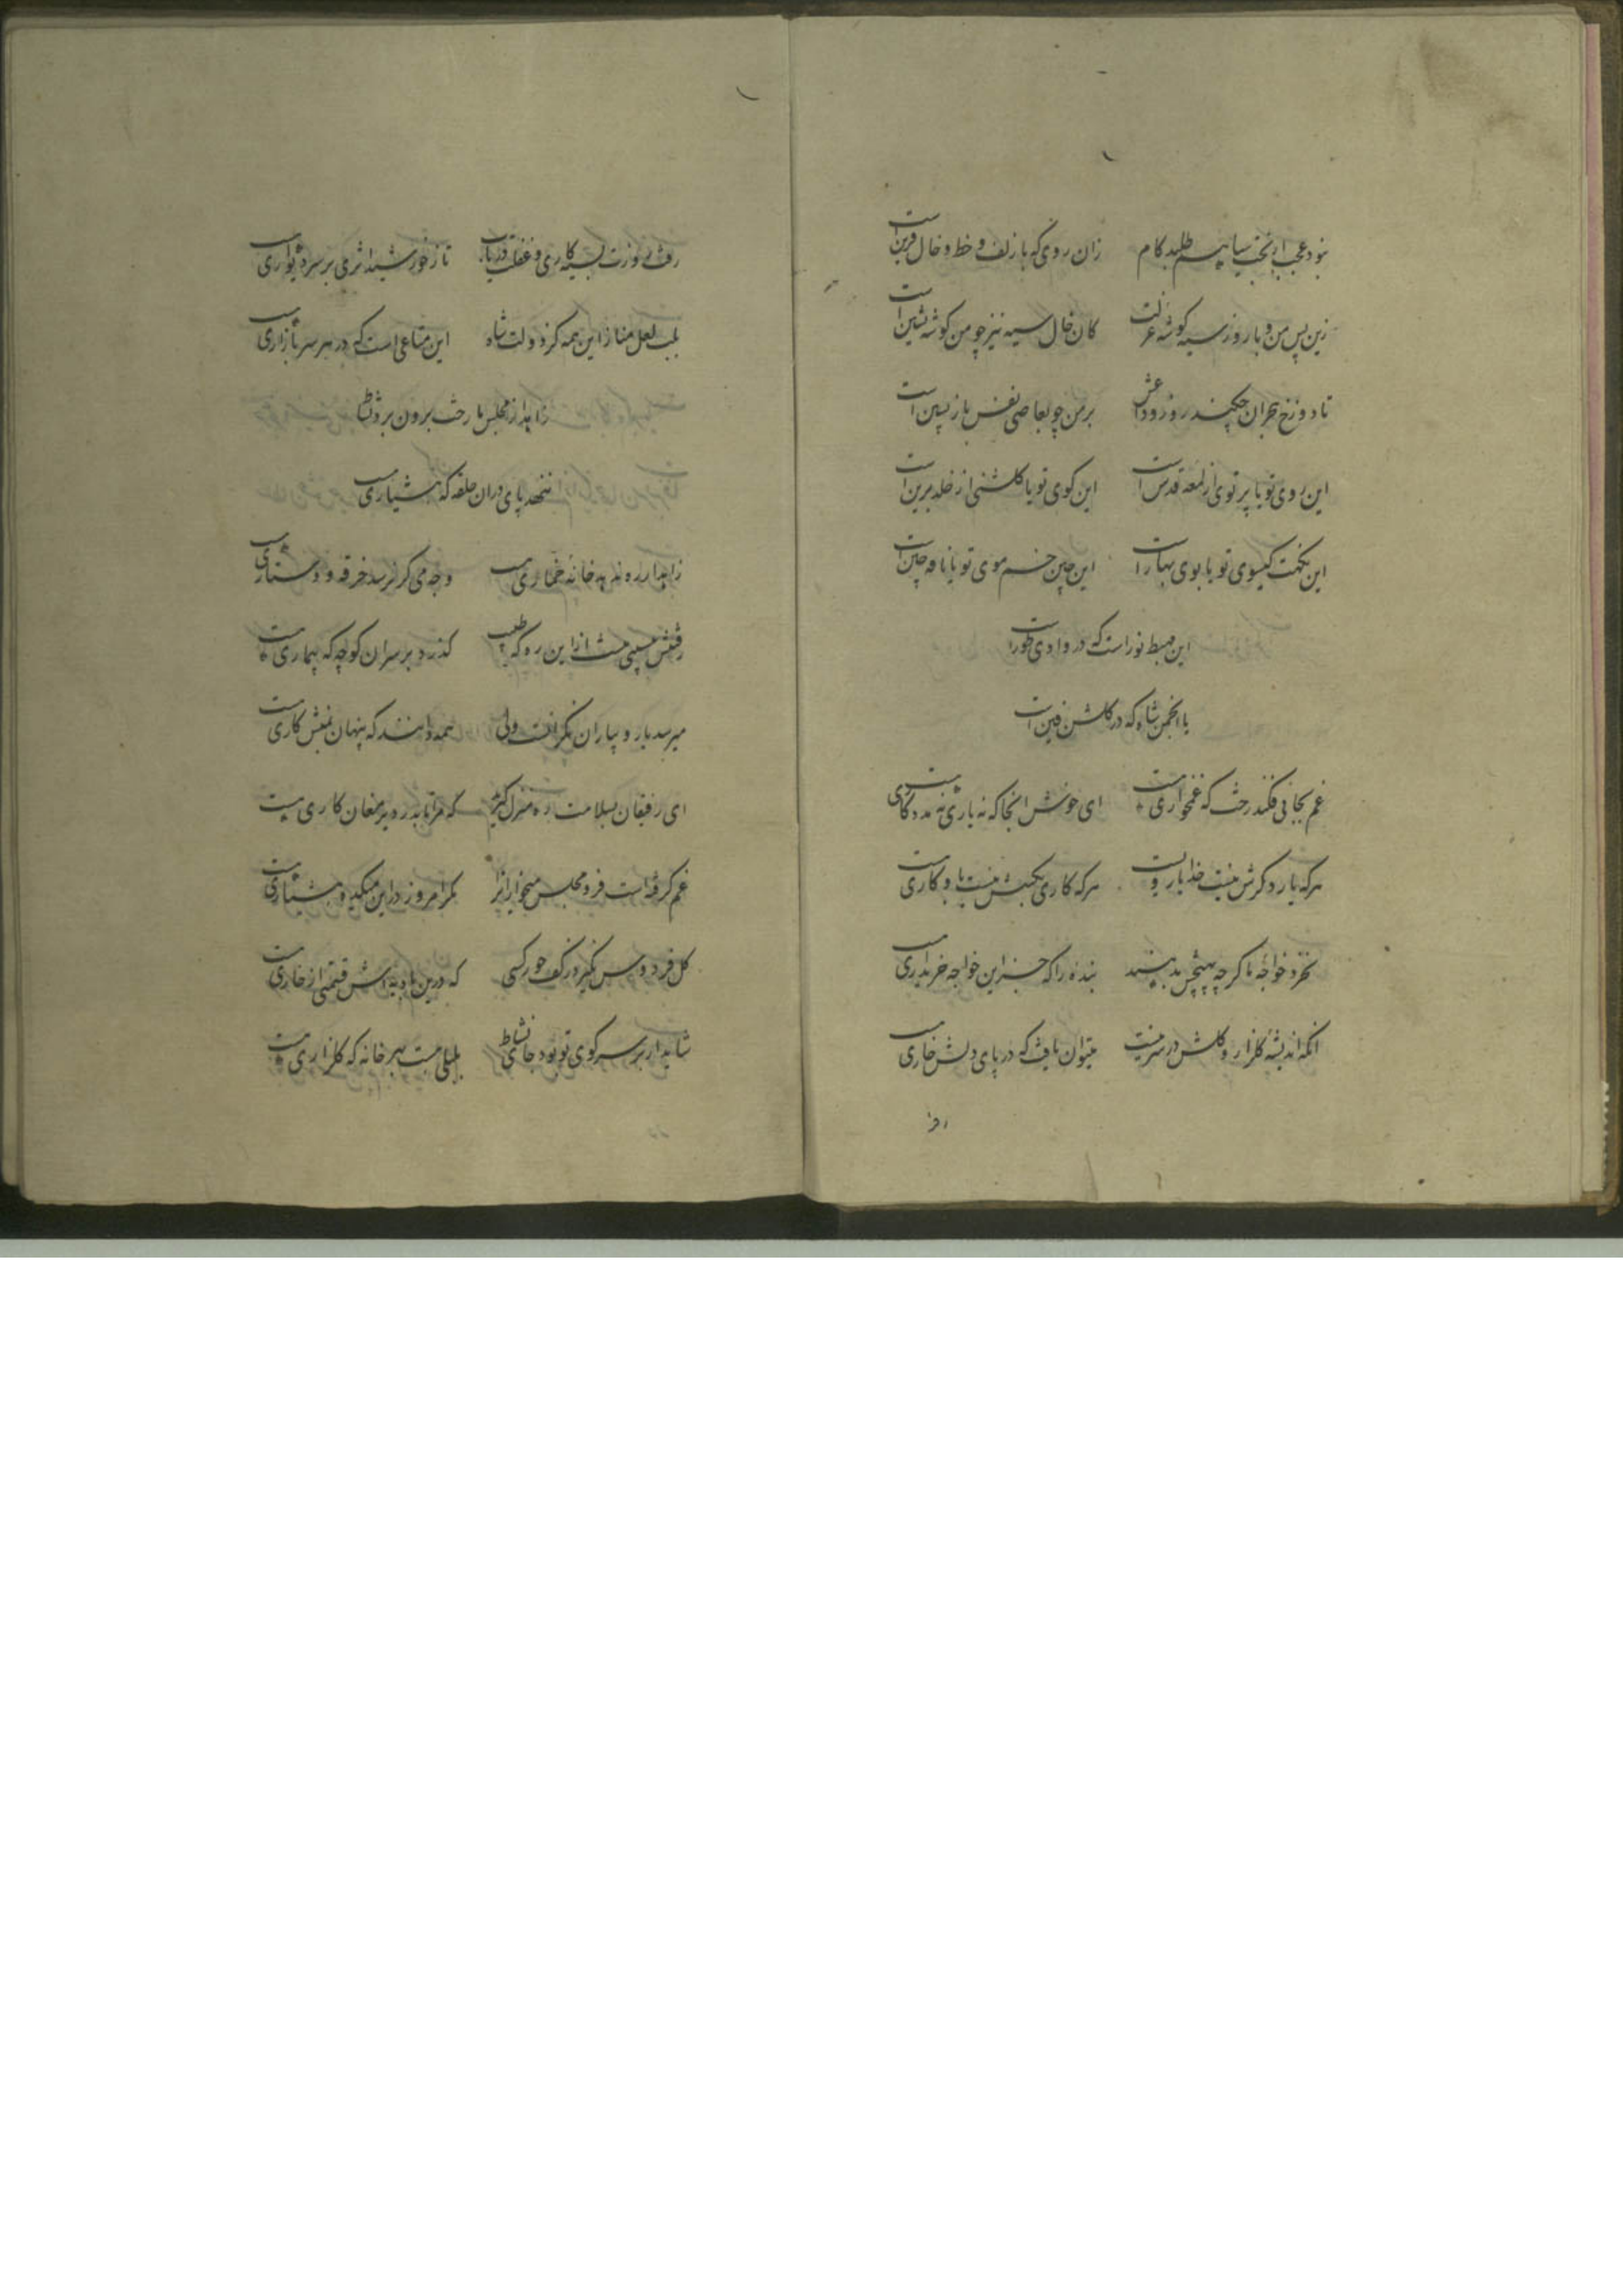 نبود عجب ار بخت سیاهم طلبد کام زان روی که با زلف و خط و خال قرین است
زین پس من و با روز سیه گوشه عزلت کان خال سیه نیز چو من گوشه نشین است
تا دوزخ هجران چکند روز وداعش بر من چو بعاصی نفس باز پسین است
این روی تو یا پرتوی از لمعه قدس است این کوی تو یا گلشنی از خلد برین است
این نکهت گیسوی تو یا بوی بهار است این چین خم موی تو یا نافه چین است
این مهبط نور است که در وادی طور است
یا انجمن شاه که در گلشن فین است
غم بجائی فکند رخت که غمخواری هست ای خوش آنجا که نه یاری نه مددکاری هست
هر که یار دگرش نیست خدا یار ویست هر که کاری بکسش نیست باو کاری هست
نخرد خواجه ما گر چه بهیچش بدهند بنده را که جز این خواجه خریداری هست
آنکه اندیشه گلزار و گلش در سر نیست میتوان یافت که در پای دلش خاری هست
رفت
رفت روزت بسیه کاری و غفلت دریاب تا ز خورشید اثری بر سر دیواری هست
بلب لعل مناز این همه کز دولت شاه این متاعی است که در هر سر بازاری هست
زاهد از مجلس ما رخت برون برد نشاط
ننهد پای در آن حلقه که هشیاری هست
زاهد ار ره ندهد خانه خماری هست وجه می گر نرسد خرقه و دستاری هست
رفتنش سهمی هست از این ره که طبیب گذرد بر سر آن کوچه که بیماری هست
میرسد یار و بیاران نگرانست ولی همه دانند که پنهان بمنش کاری هست
ای رفیقان بسلامت ره منزل گیرید که مرا تا بدر دیر مغان کاری هست
غم گرفته است فرو مجلس میخواران را مگر امروز در این میکده هشیاری هست
گل فردوس نگیرد ز کف حور کسی که درین بادیه اش قیمتی از خاری هست
شاید ار بر سر کوی تو بود جای نشاط بلبلی هست بهر خانه که گلزاری هست